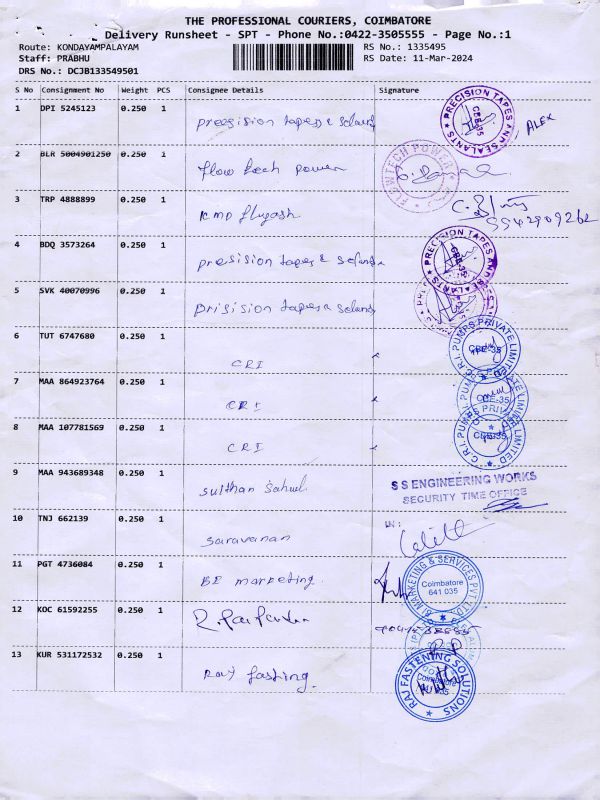 THE PROFESSIONAL COURIERS, COIMBATORE
Delivery Runsheet - SPT - Phone No.:0422-3505555 - Page No.:1
Route: KONDAYAMPALAYAM
RS No.: 1335495
Staff: PRABHU
RS Date: 11-Mar-2024
DRS No.: DCJB133549501
S No Consignment No Weight PCS Consignee Details Signature
1 DPI 5245123 0.250 1
PRECISION TAPES AND SEALANTS
CBE-35
ALEX
2 BLR 5004901250 0.250 1 flow tech power
FLOWTECH POWER
3 TRP 4888899 0.250 1 KMP flyash
9942909262
4 BDQ 3573264 0.250 1
PRECISION TAPES AND SEALANTS
CBE-35
5 SVK 40070996 0.250 1
6 TUT 6747680 0.250 1 CRI
C.R.I. PUMPS PRIVATE LIMITED
CBE-35
7 MAA 864923764 0.250 1 CRI
CBE-35
8 MAA 107781569 0.250 1 CRI
C.R.I. PUMPS PRIVATE LIMITED
CBE-35
9 MAA 943689348 0.250 1 sulthan
S S ENGINEERING WORKS
SECURITY TIME OFFICE
10 TNJ 662139 0.250 1 saravanan
11 PGT 4736084 0.250 1 marketing
MARKETING & SERVICES PVT LTD
Coimbatore
641 035
12 KOC 61592255 0.250 1
13 KUR 531172532 0.250 1 Raj fasting.
RAJ FASTENING SOLUTIONS